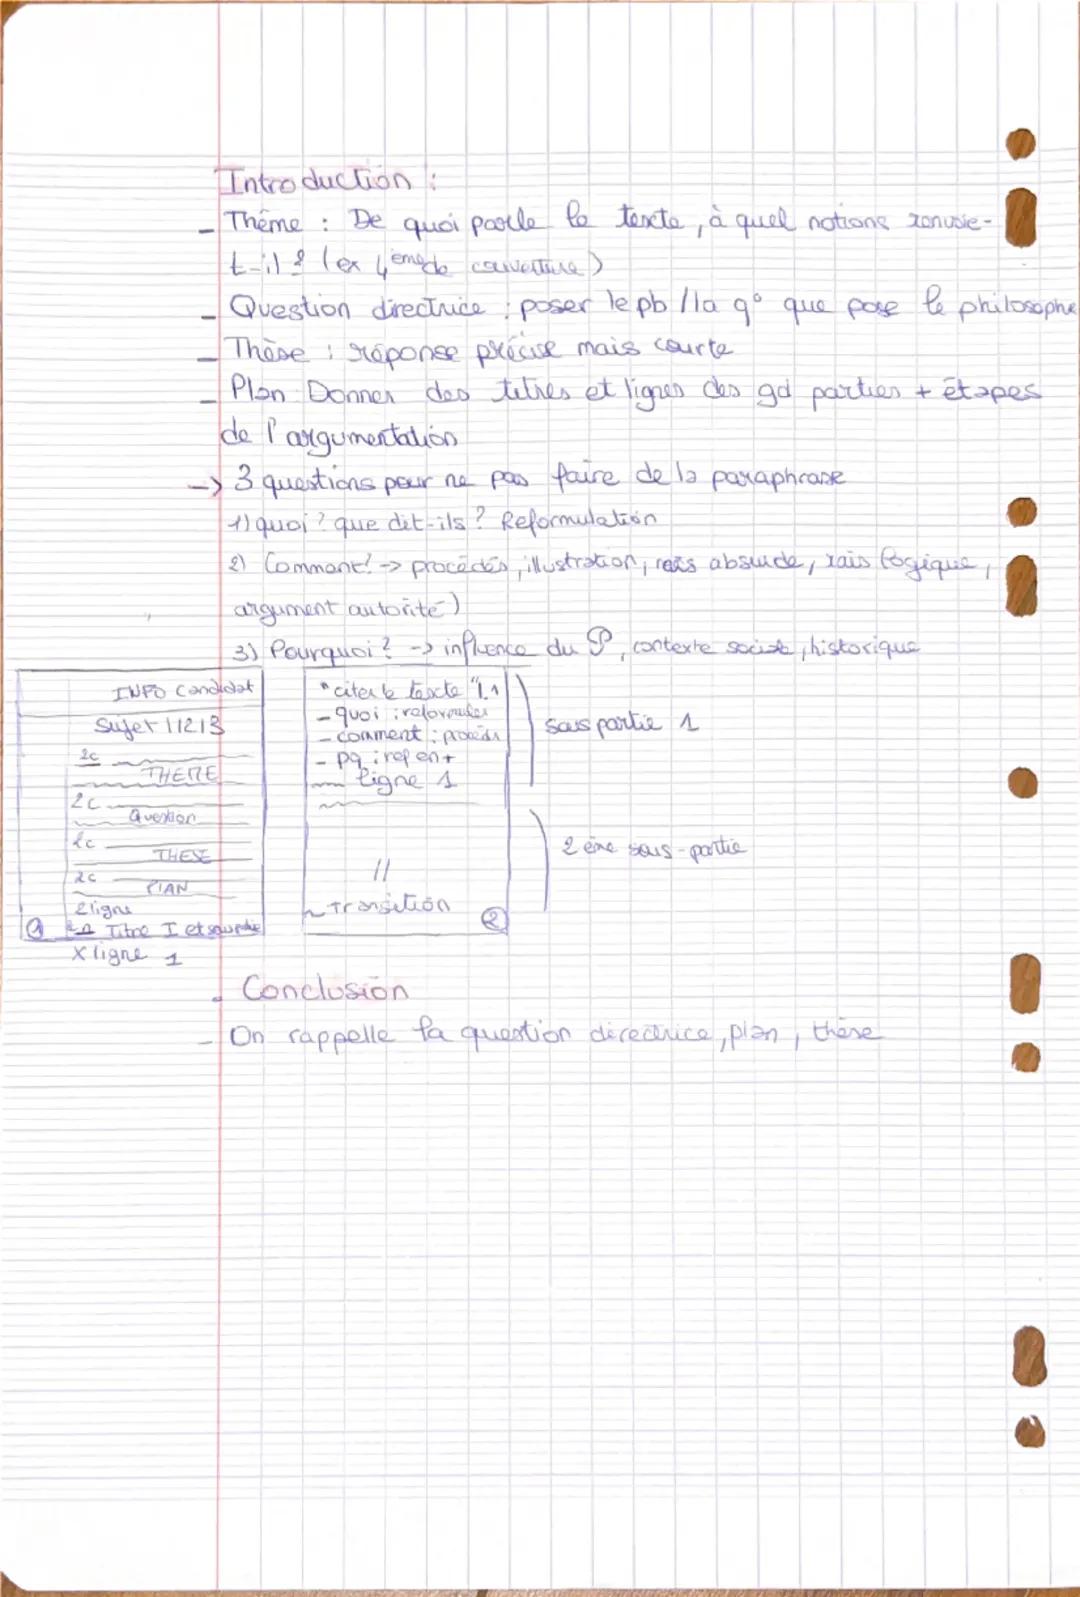 Introduction :
- Thème : De quoi parle le texte, à quel notions renvoie-
t-il ? (ex 4ème de couverture)
- Question directrice : poser le pb / la q° que pose le philosophe
- Thèse : réponse précise mais courte
- Plan Donner des titres et lignes des gd parties + étapes
de l'argumentation
-> 3 questions pour ne pas faire de la paraphrase
1) quoi ? que dit-ils ? Reformulation
2) Comment? -> procédés, illustration, rais absurde, rais logique,
argument autorité)
3) Pourquoi ? -> influence du P, contexte sociale, historique
INFO Candidat
Sujet 1 1 2 1 3
2c
THEME
2c
Question
2c
THESE
2c
PLAN
2 ligne
Titre I et
1
X ligne 1
"citer le texte" l.1
- quoi : reformuler
- comment : procédé
- pq : rep en +
ligne 1
//
Transition
2
sous partie 1
2 ème sous-partie
- Conclusion
- On rappelle la question directrice, plan, thèse